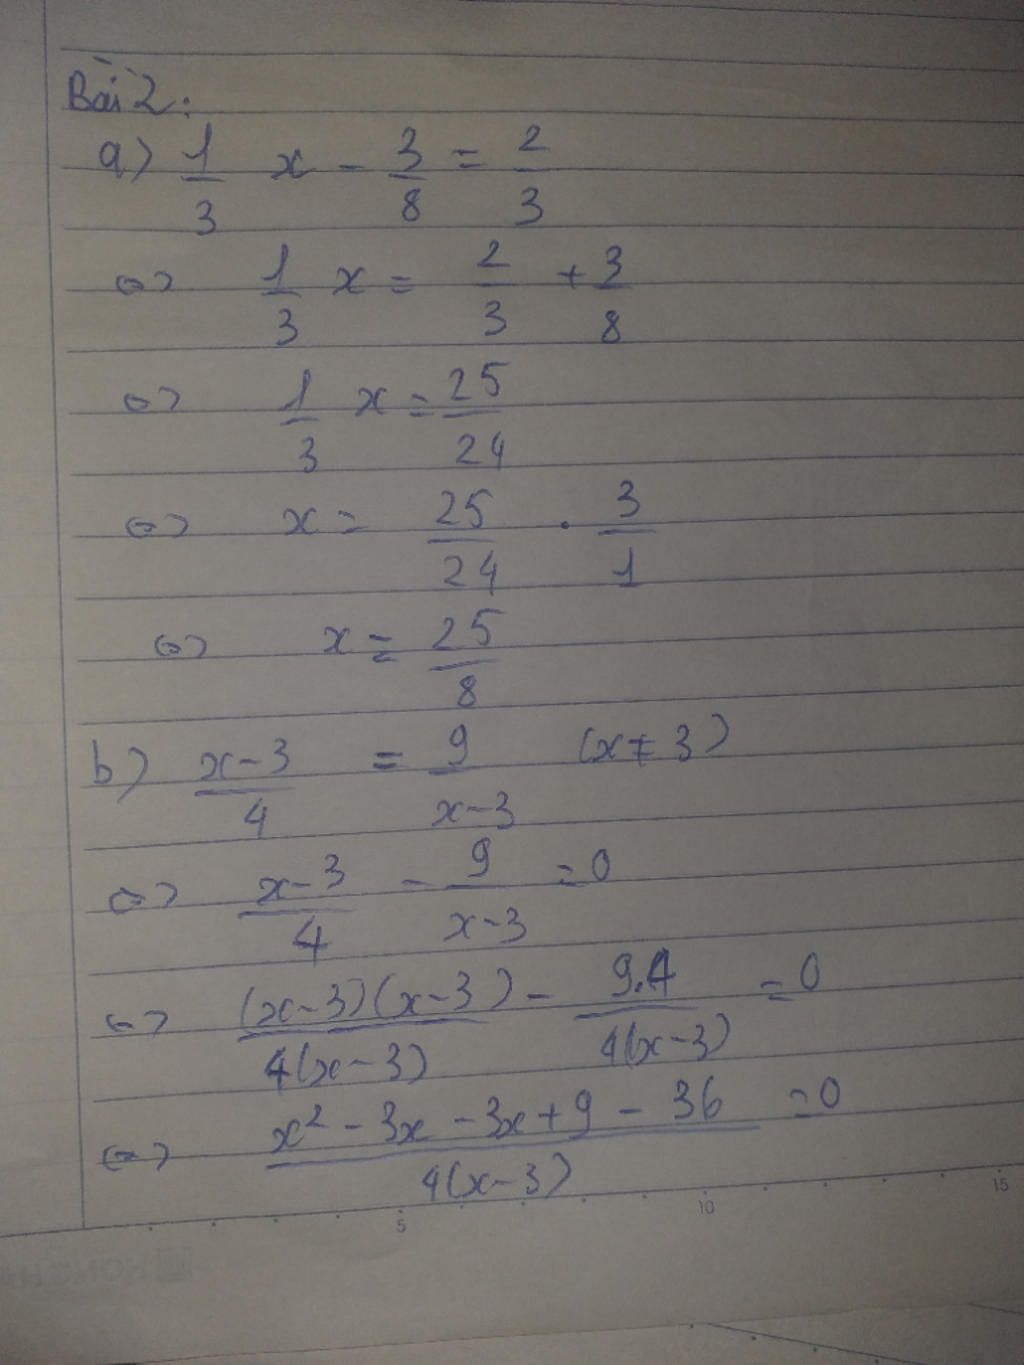 Bài 2:
a) 1/3 x - 3/8 = 2/3
<=> 1/3 x = 2/3 + 3/8
<=> 1/3 x = 25/24
<=> x = 25/24 . 3/1
<=> x = 25/8
b) (x-3)/4 = 9/(x-3) (x ≠ 3)
<=> (x-3)/4 - 9/(x-3) = 0
<=> (x-3)(x-3)/4(x-3) - 9.4/4(x-3) = 0
<=> (x² - 3x - 3x + 9 - 36)/4(x-3) = 0
5 10 15